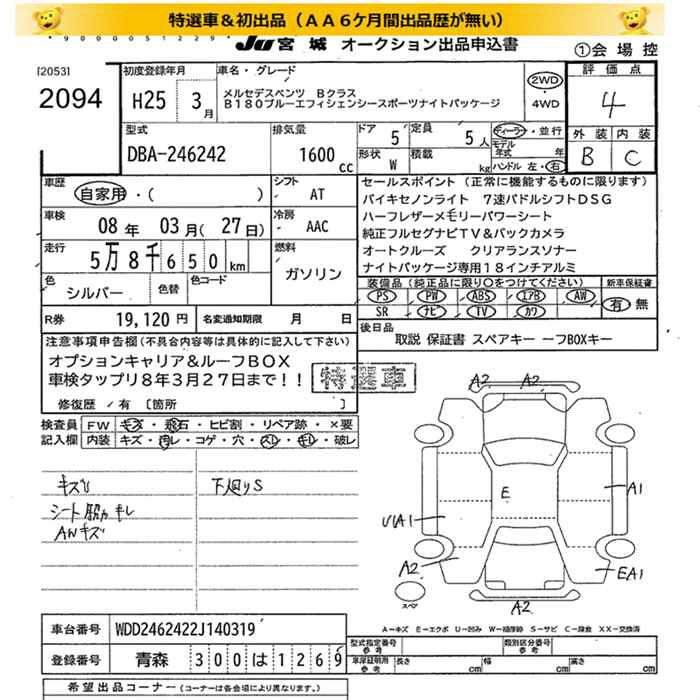 特選車＆初出品（ＡＡ６ケ月間出品歴が無い）
*9000051229*
JU宮城 オークション出品申込書
①会場控
[2053]
2094
初度登録年月
H25 3月
車名・グレード
メルセデスベンツ Ｂクラス
Ｂ１８０ブルーエフィシェンシースポーツナイトパッケージ
2WD
・
4WD
評価点
4
外装 内装
B C
型式
DBA-246242
排気量
1600cc
ドア 5
定員 5人
形状 W
積載 kg
ディーラー・並行
モデル年式 年
ハンドル 左・右
車歴
自家用・( )
シフト AT
車検
08年 03月(27日)
冷房 AAC
走行
5万8千650km
燃料
ガソリン
色
シルバー
色替
色コード
R券 19,120円
名変通知期限 月 日
セールスポイント（正常に機能するものに限ります）
バイキセノンライト ７速パドルシフトＤＳＧ
ハーフレザーメモリーパワーシート
純正フルセグナビＴＶ＆バックカメラ
オートクルーズ クリアランスソナー
ナイトパッケージ専用１８インチアルミ
装備品（純正品に限り○をつけてください）
新車保証書
PS PW ABS エアB AW
SR ナビ TV カワ
有・無
後日品
取説 保証書 スペアキー ーフBOXキー
注意事項申告欄（不具合内容等は具体的に記入して下さい）
オプションキャリア＆ルーフＢＯＸ
車検タップリ８年３月２７日まで！！
特選車
修復歴・有〔箇所 〕
検査員記入欄
FW キズ・飛石・ヒビ割・リペア跡・×要
内装 キズ・汚レ・コゲ・穴・スレ・キレ・破レ
キズ
下廻りS
シート脇カキレ
AWキズ
A2 A2
E
A1
U1A1
A2
EA1
A2
スペア
A－キズ E－エクボ U－凹み W－補修跡 S－サビ C－腐食 XX－交換済
車台番号 WDD2462422J140319
登録番号 青森 300は1269
型式指定番号 参考
類別区分番号 参考
車庫証明用 参考
長さ cm
幅 cm
高さ cm
希望出品コーナー（コーナーは各会場により異なります。）